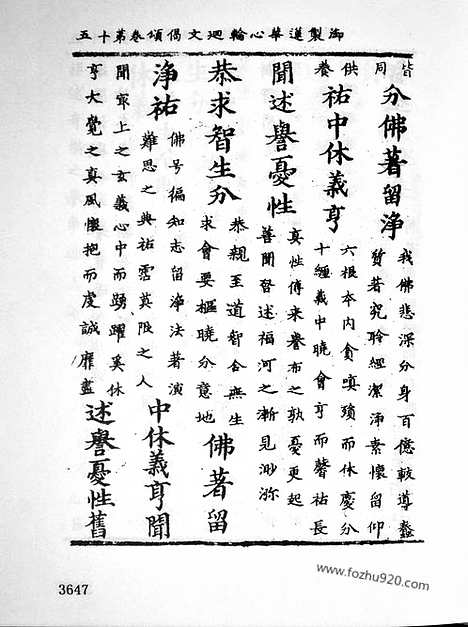 御製蓮華心輪廻文偈頌卷第十五
皆
同
分佛著留淨
我佛悲深分身百億敷導蠢
著究聆經潔淨素懷留仰
供
養
祐中休義亨
六根本內貪嗔殞而休慶分
十纏義中曉會亨而馨祐長
聞述譽憂性
真性傳來譽布之孰憂更起
善聞述福河之漸見渺瀰
恭求智生分
恭親至道智含無生
求會要樞曉分意地
佛著留
淨祐
佛号徧知志留淨法著演
難思之典祐霑莫限之人
中休義亨聞
聞最上之玄義心中而踴躍奚休
亨大覺之真風懷抱而虔誠靡盡
述譽憂性舊
3647
www.fozhu920.com